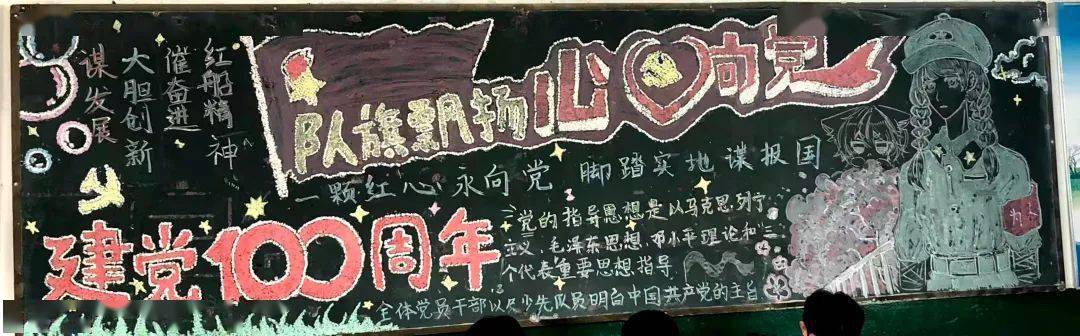 红船精神
催奋进
大胆创新
谋发展
队旗飘扬心向党
一颗红心永向党 脚踏实地谋报国
建党100周年
党的指导思想是以马克思.列宁
主义、毛泽东思想、邓小平理论和"三
个代表重要思想指导.
全体党员干部以及少先队员明白中国共产党的主旨
为人